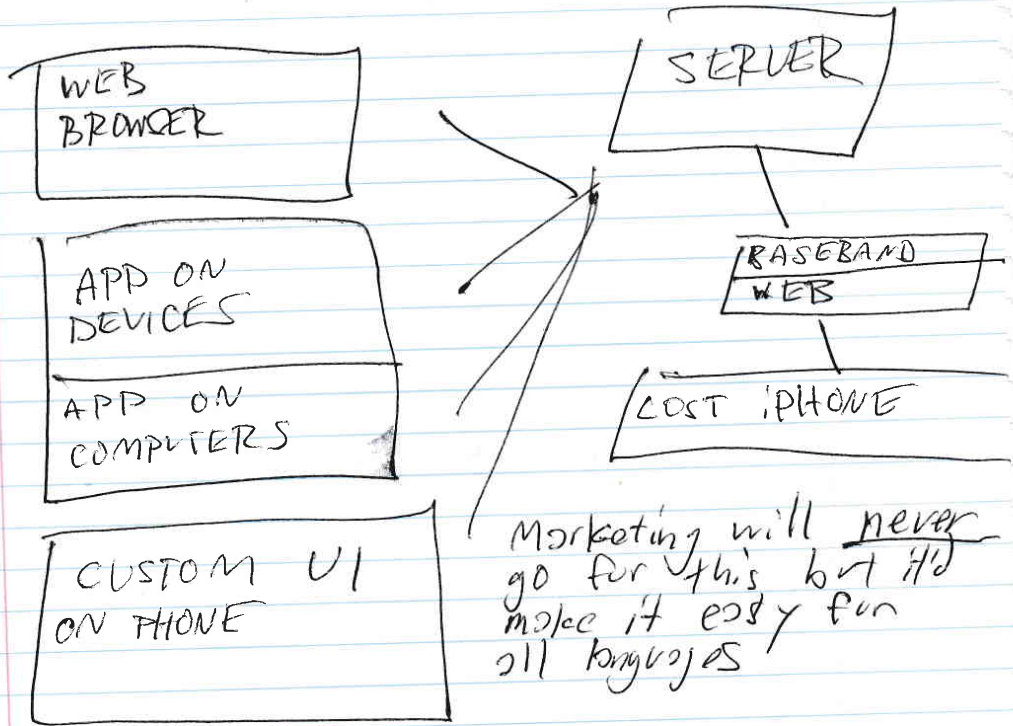 WEB
BROWSER
APP ON
DEVICES
APP ON
COMPUTERS
CUSTOM UI
ON PHONE
SERVER
BASEBAND
WEB
LOST iPHONE
Marketing will never
go for this but it'd
make it easy for
all languages